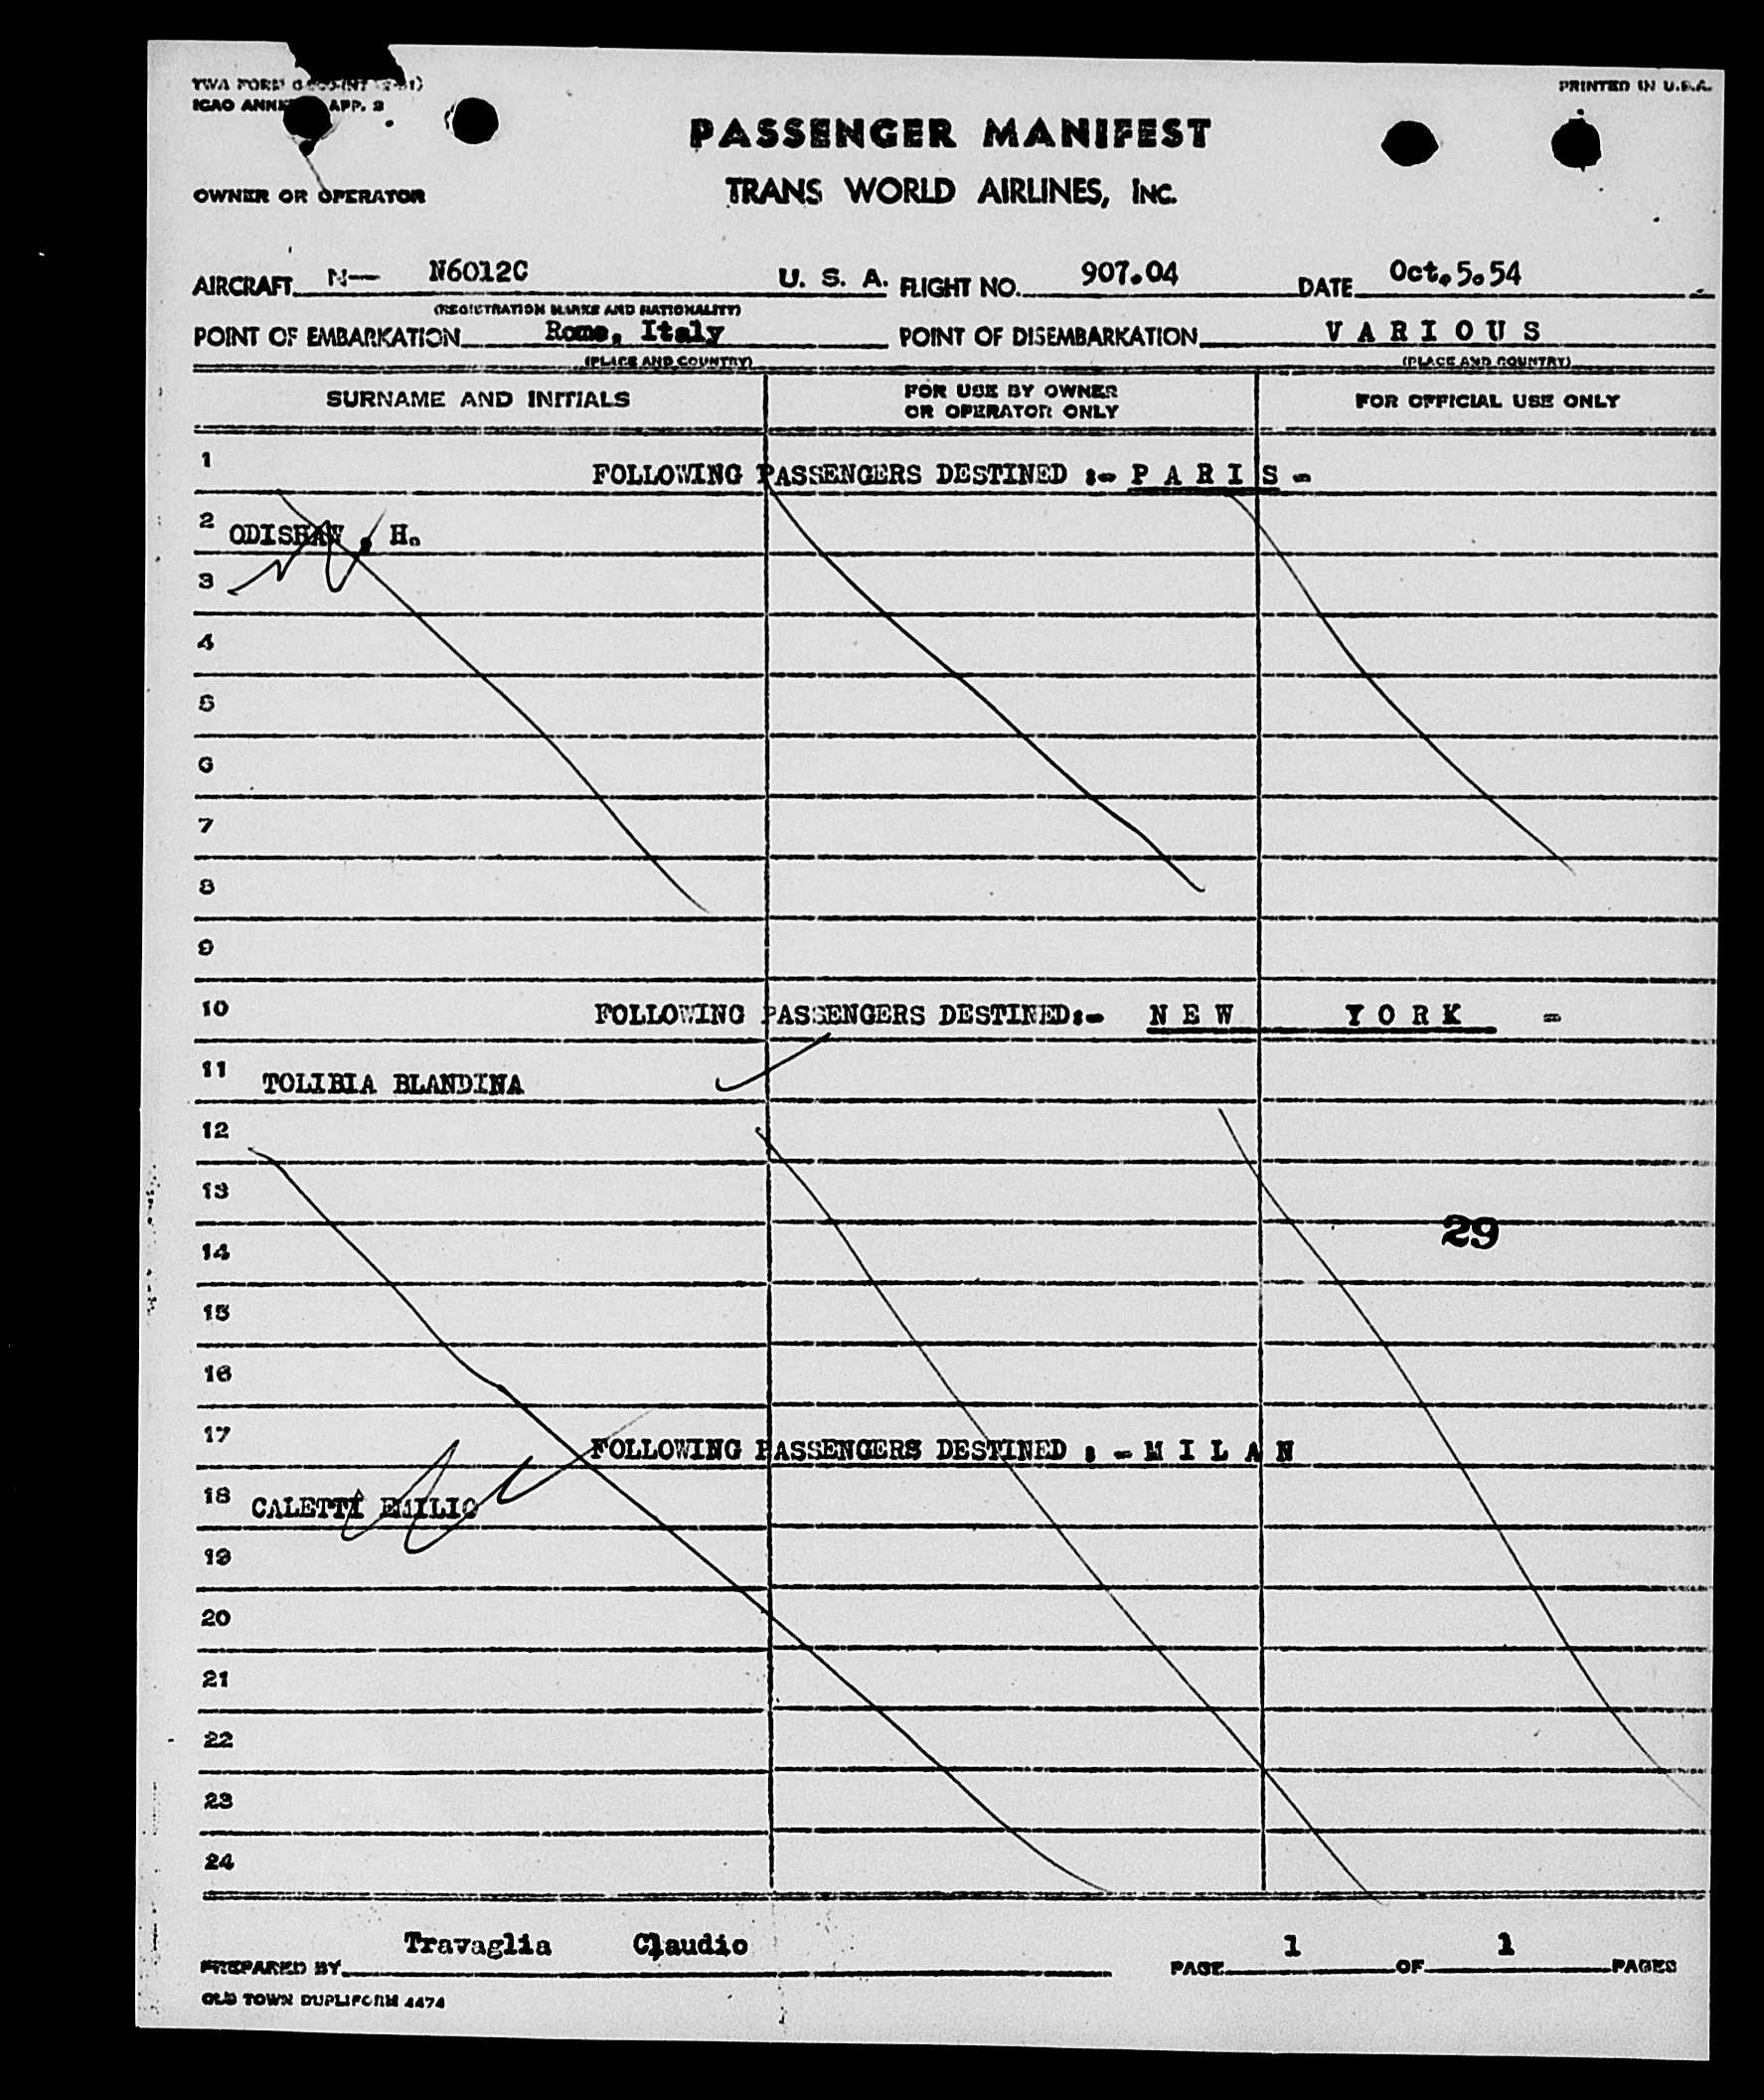 TWA FORM
PRINTED IN U.S.A.
ICAO ANNEX APP. 2
PASSENGER MANIFEST
TRANS WORLD AIRLINES, INC.
OWNER OR OPERATOR
AIRCRAFT N— N6012C U. S. A. FLIGHT NO. 907.04 DATE Oct.5.54
(REGISTRATION MARKS AND NATIONALITY)
POINT OF EMBARKATION Rome, Italy POINT OF DISEMBARKATION V A R I O U S
(PLACE AND COUNTRY) (PLACE AND COUNTRY)
SURNAME AND INITIALS FOR USE BY OWNER OR OPERATOR ONLY FOR OFFICIAL USE ONLY
1 FOLLOWING PASSENGERS DESTINED :- P A R I S -
2 ODISHAW , H.
3
4
5
6
7
8
9
10 FOLLOWING PASSENGERS DESTINED:- N E W Y O R K =
11 TOLIBIA BLANDINA
12
13
29
14
15
16
17 FOLLOWING PASSENGERS DESTINED : - M I L A N
18 CALETTI EMILIO
19
20
21
22
23
24
PREPARED BY Travaglia Claudio PAGE 1 OF 1 PAGES
OLD TOWN DUPLIFORM 4474